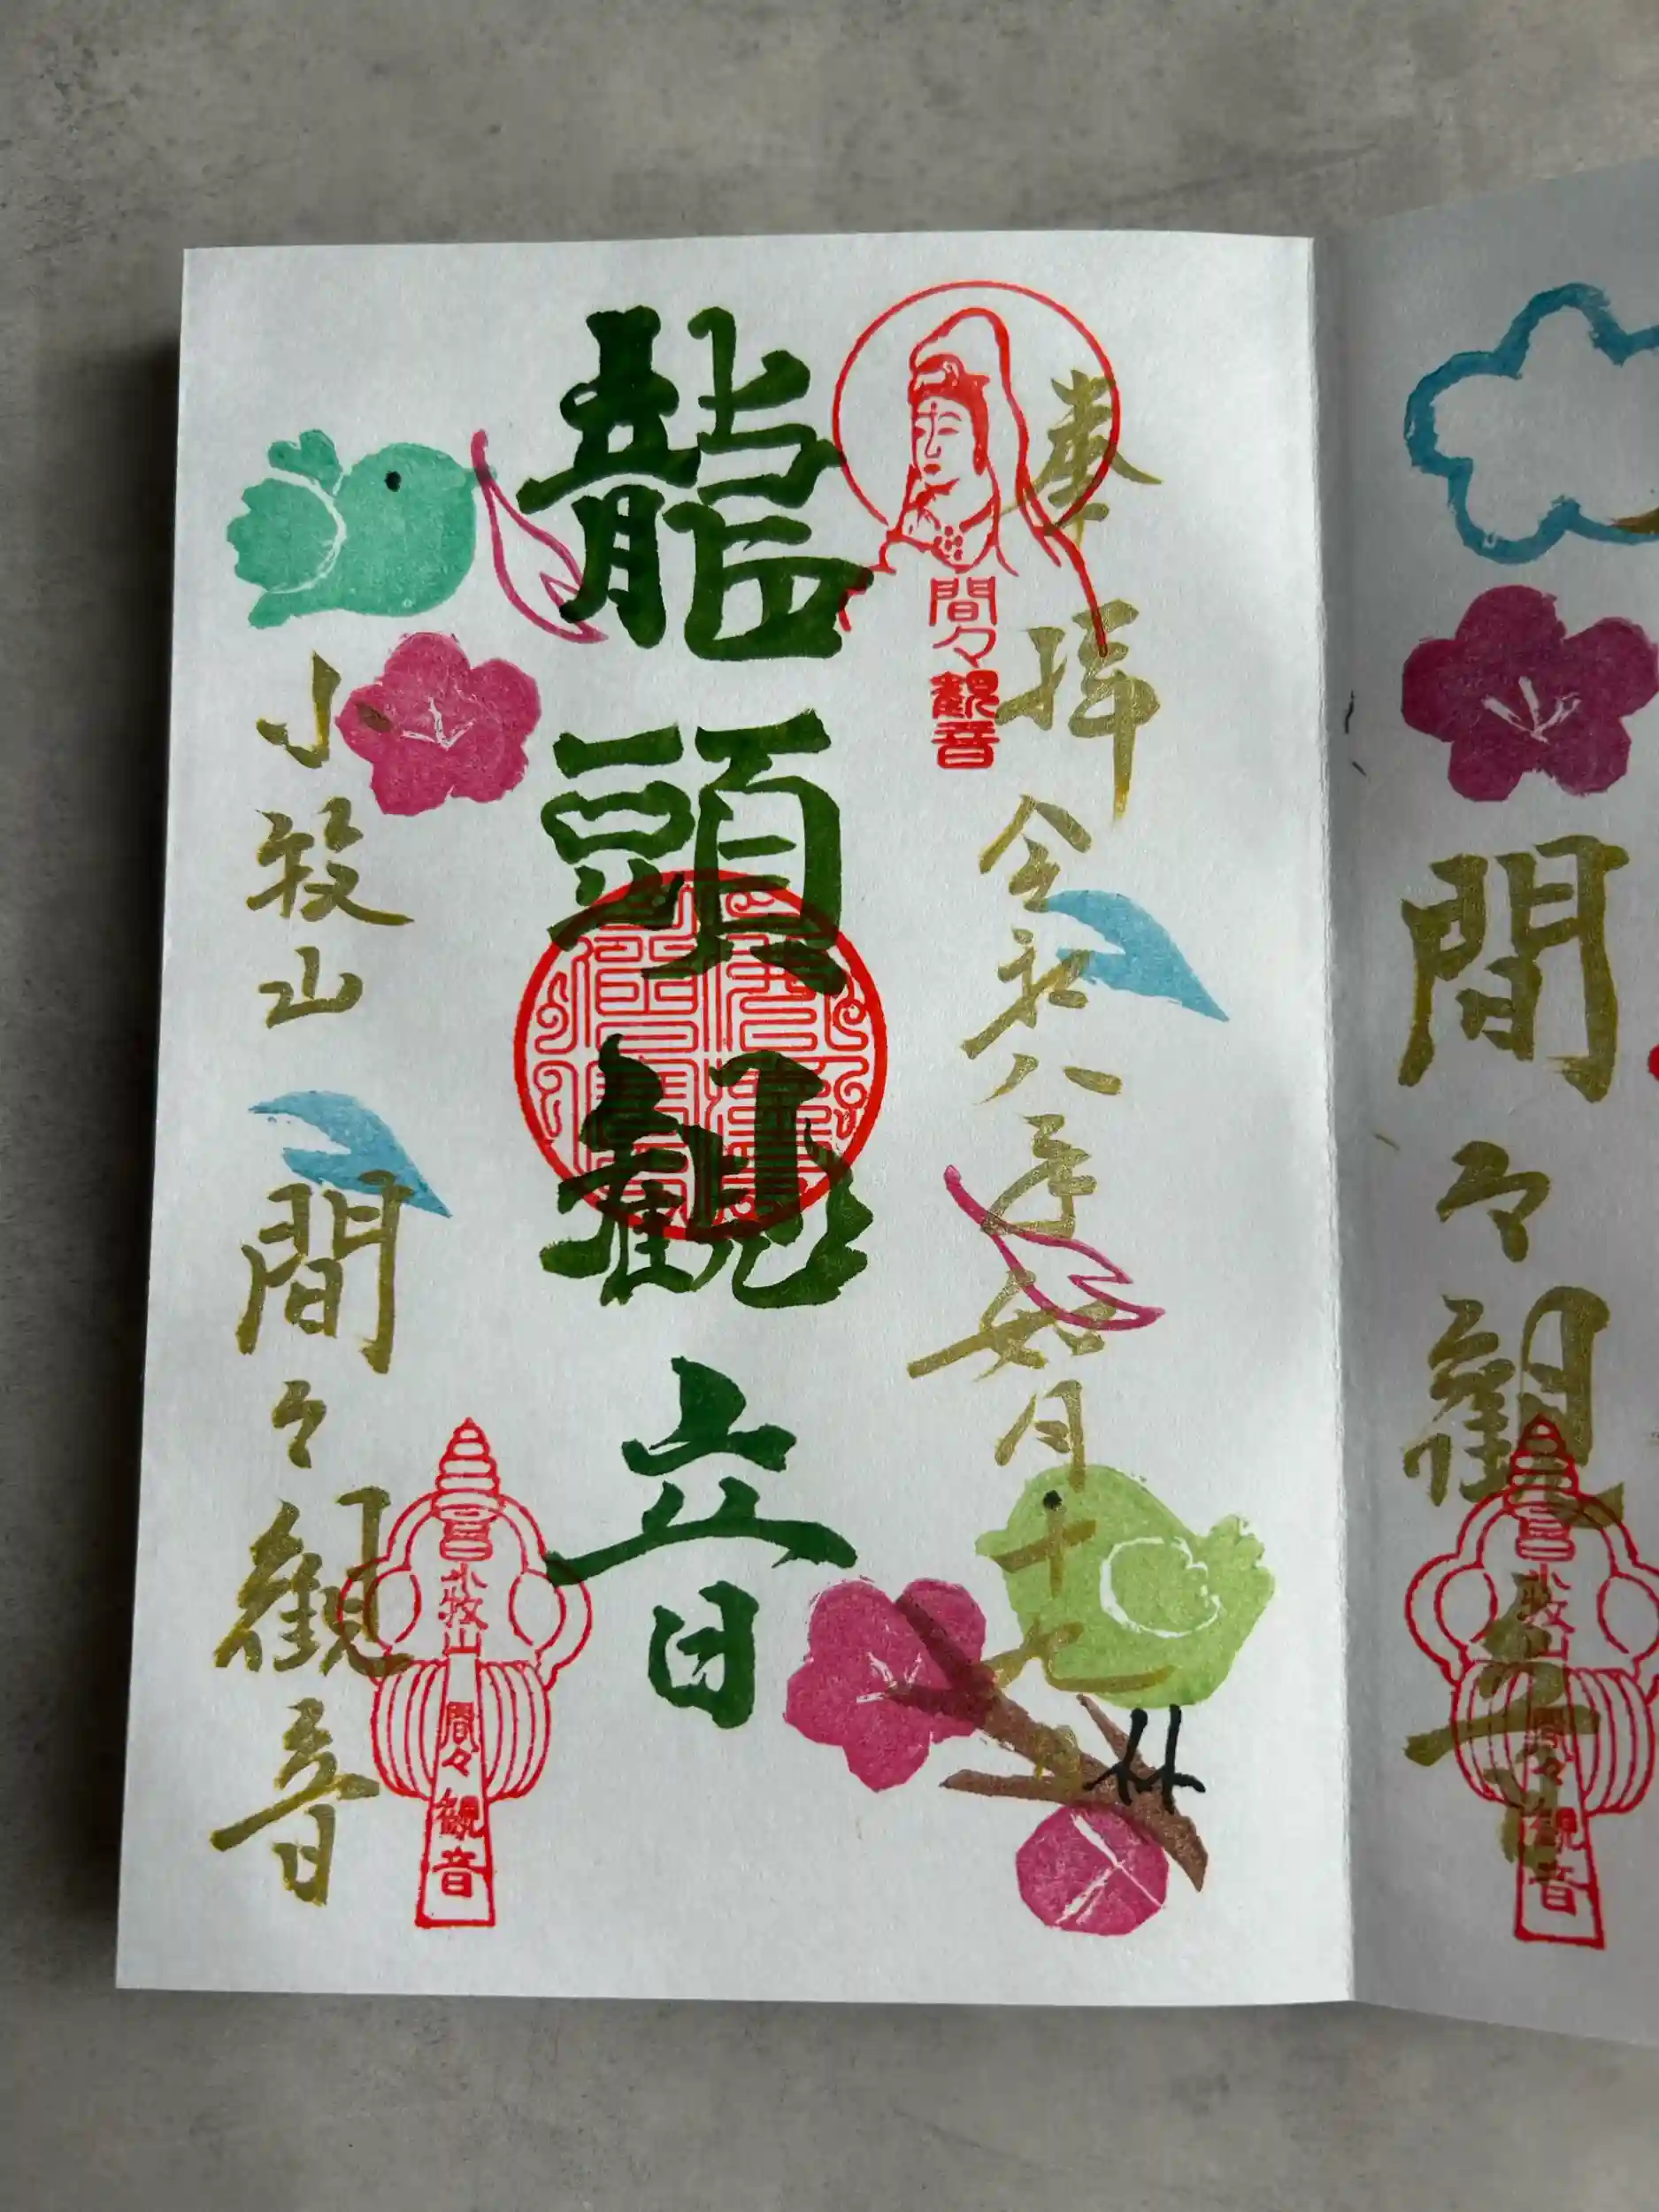 間々観音
小牧山 間々観音
奉拝
令和八年如月十七日
間々観音
龍頭観音
小牧山 間々観音
小牧山 間々観音